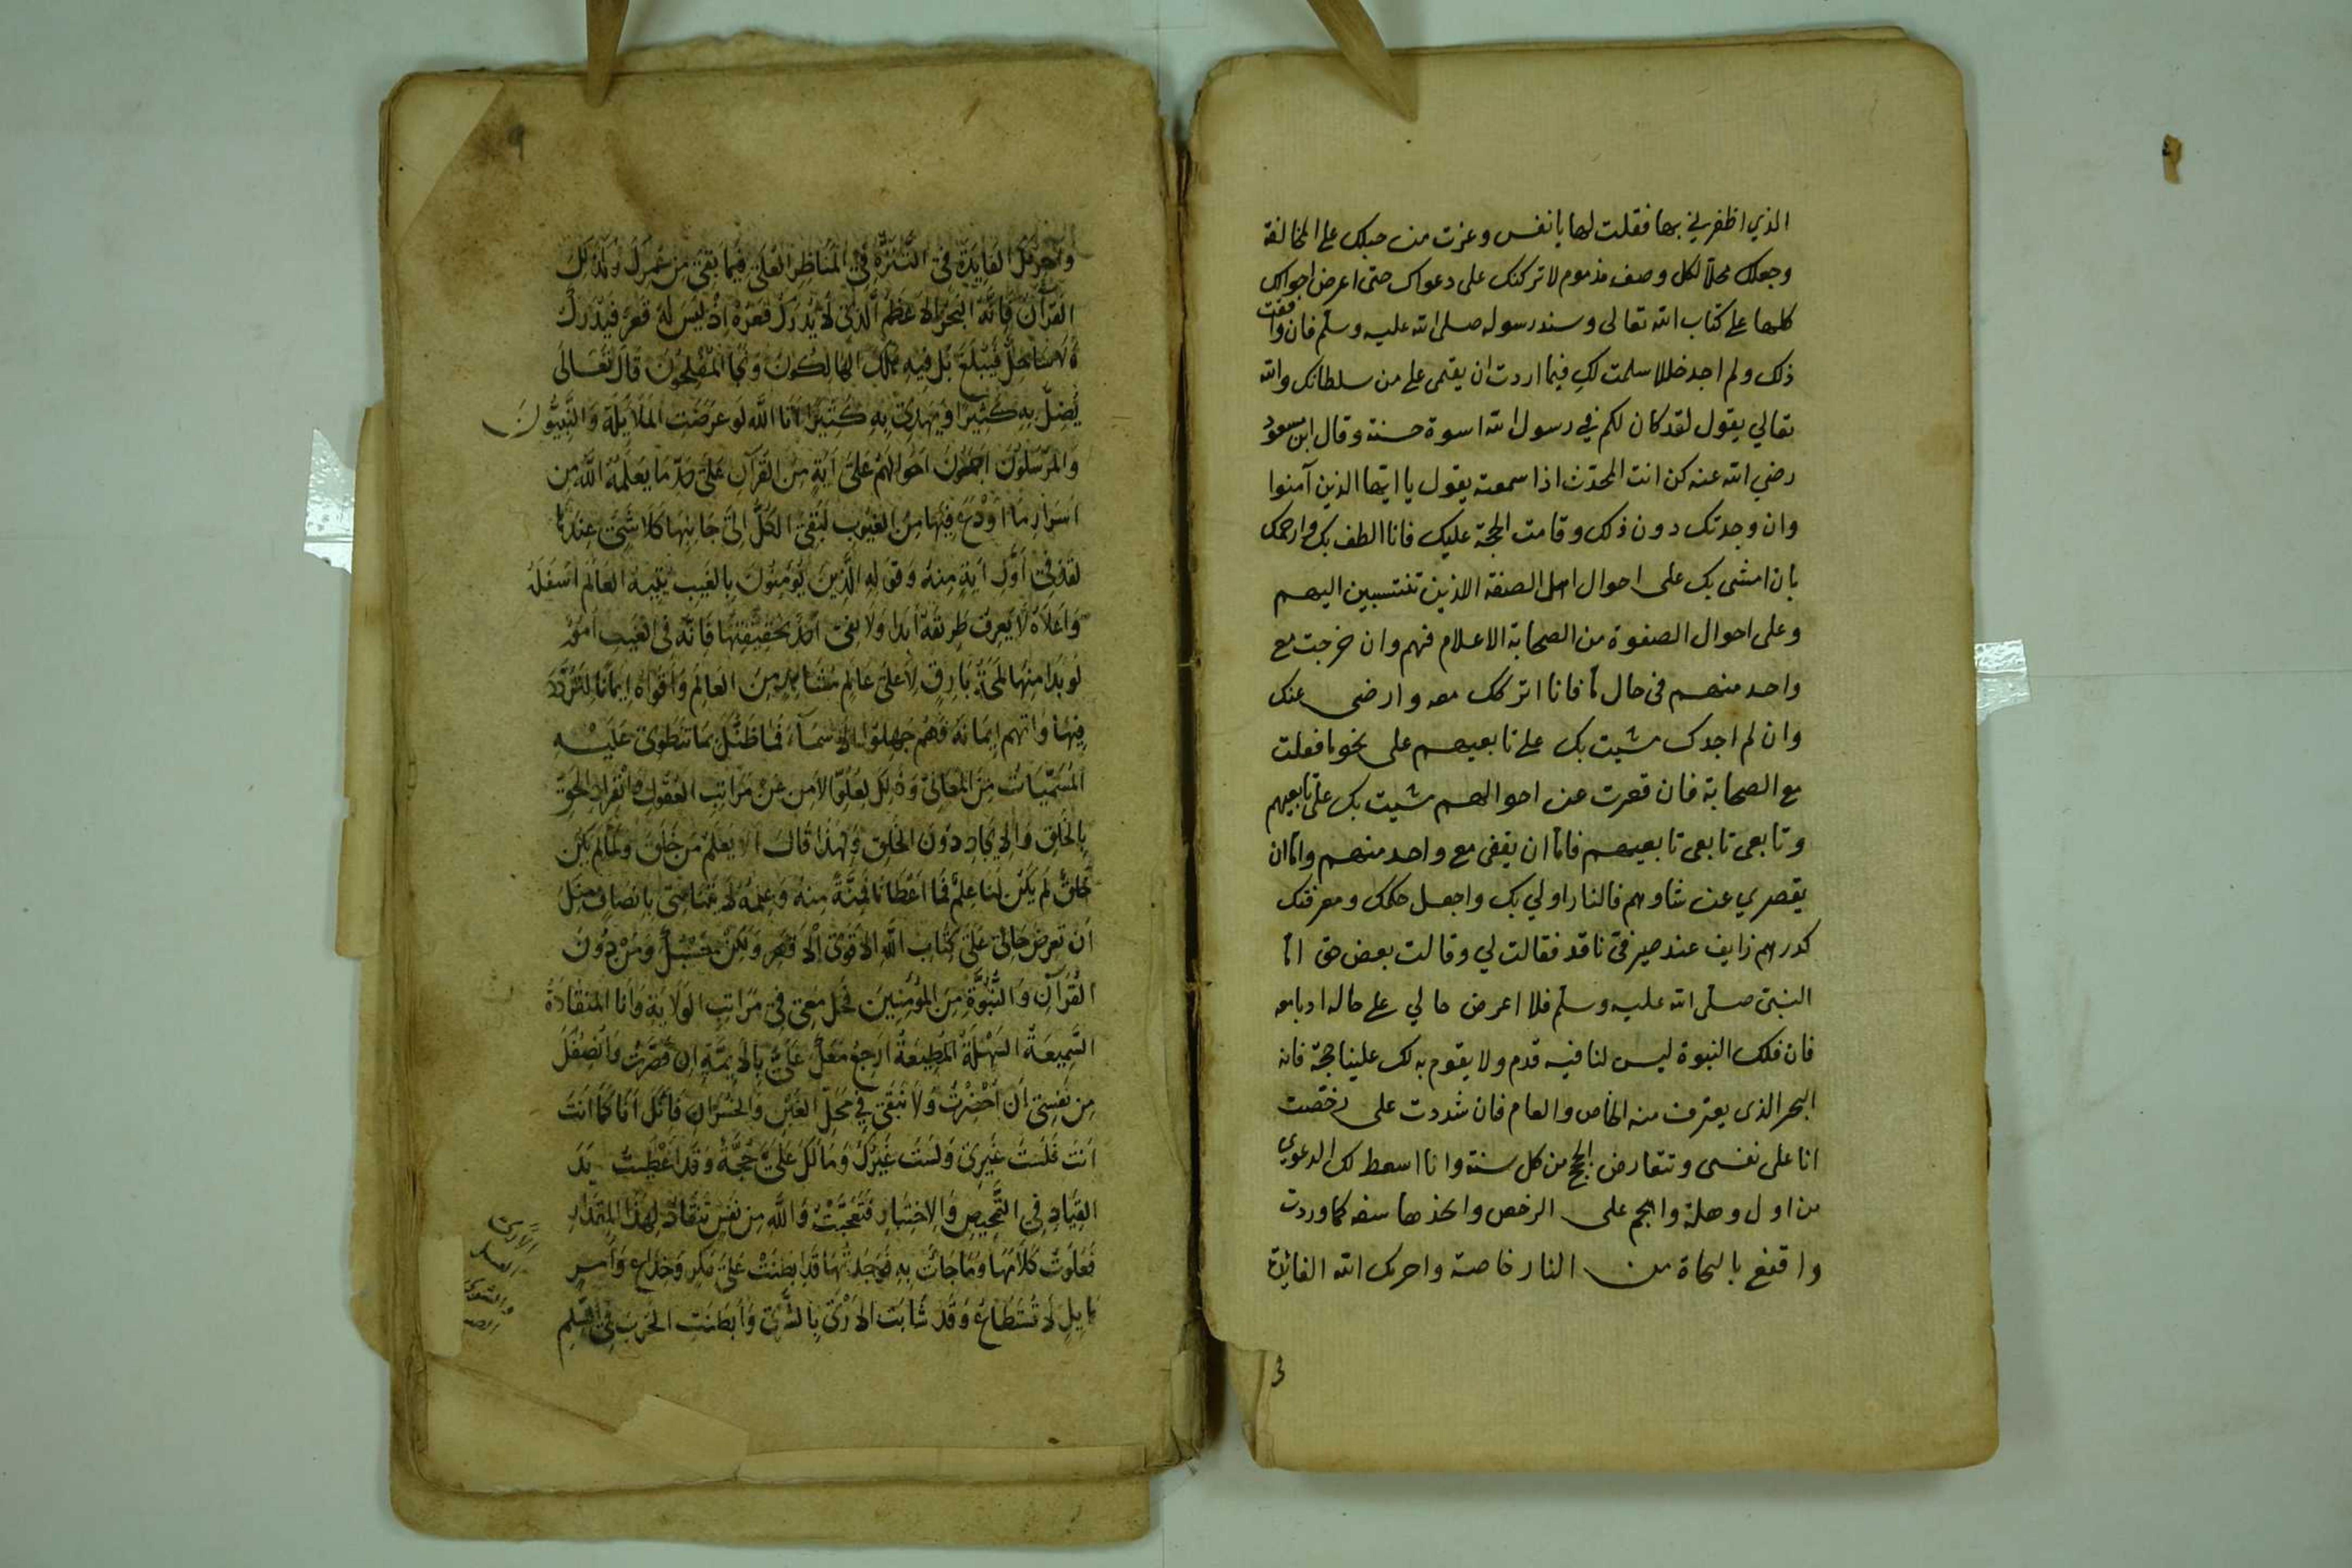 الذي اظفرني بها فقلت لها يا نفس وعزت من حبلك على المخالفة
وجعلك محلا لكل وصف مذموم لا تركنك على دعواك حتى اعرض احوالك
كلها على كتاب الله تعالى وسنة رسوله صلى الله عليه وسلم فان وافقت
ذلك ولم اجد خللا سلمت لك فيما اردت ان يقتى على من سلطانك والله
تعالي يقول لقد كان لكم في رسول الله اسوة حسنة وقال ابن مسعود
رضي الله عنه كن انت المحدث اذا سمعته يقول يا ايها الذين آمنوا
وان وجدتك دون ذلك وقامت الحجة عليك فانا الطف بك وارحمك
بان امشى بك على احوال اهل الصفة الذين تنتسبين اليهم
وعلى احوال الصفوة من الصحابة الاعلام فهم وان خرجت مع
واحد منهم فى حال ما فانا اتركك معه وارضى عنك
وان لم اجدك مشيت بك على تابعيهم على نحو ما فعلت
مع الصحابة فان قصرت عن احوالهم مشيت بك على تابعيهم
وتابعى تابعى تابعيهم فاما ان يقفى مع واحد منهم واما ان
يقصري عن شاوهم فالنار اولي بك واجعل حكمك ومعرفتك
كدرهم زايف عند صيرفى ناقد فقالت لي وقالت بعض حق اما
النبى صلى الله عليه وسلم فلا اعرض حالي على حاله ادبا معه
فان فلك النبوة ليس لنا فيه قدم ولا يقوم به لك علينا حجة فانه
البحر الذى يعترف منه الخاص والعام فان شددت على رخصت
انا على نفسى وتتعارض الحجج من كل سنة وانا اسقط لك الدعوي
من اول وهلة واهجم على الرخص واتخذها سنه كما وردت
واقنع بالنجاة من النار خاصة واحرمك الله الفائدة
3
9
وَاحرمك الفَايِدَة فى التَّنَزُّه فى المَنَاظِر العُلَى فِيمَا بَقِىَ مِن عُمرِكَ وَكَذَلِكَ
القرآن فانه البَحْرُ الاَعْظَم الَّذِى لاَ يُدْرَكُ قَعْرُهُ اِذْ لَيسَ لَهُ قَعرٌ فَيُدرَكُ
وَلا سَاحِلٌ فَيُبْلَغُ بَل فِيهِ هَلَكَ الهَالِكُونَ وَنَجَا المُفْلِحُونَ قَالَ تَعَالَى
يُضِلُّ بِهِ كَثِيرًا وَيَهدِى بِهِ كَثِيرًا اَنَا الله لَو عَرَضَتِ المَلَايِكَة وَالنَّبِيُّونَ
وَالمُرسَلُونَ اَجمَعُونَ اَحوَالَهُم عَلَى آيَةٍ مِنَ القُرآنِ عَلَى حَدِّ مَا يَعلَمُهُ اللهُ مِن
اَسرَارِ مَا اَوْدَعَ فِيهَا مِنَ الغُيُوبِ لَبَقِىَ الكُلُّ اِلَى جَانِبِهَا كَلَا شَىء عِندَنا
لَقَد فِى اَوَّلِ آيَةٍ مِنهُ وَقَوله الَّذِينَ يُؤمِنُونَ بِالغَيبِ العَالَم اَسفَلَهُ
وَاَعلَاهُ لَا يَعرِفُ طَرِيقَهُ اَبَدًا وَلَا يَفِى اَحَدٌ بِحَقِيقَتِهَا فَاِنَّهُ فِى الغَيبِ اُمُورٌ
لَو بَدَا مِنهَا لَمحَةُ بَارِقٍ لاَعلَى عَالِم مِنَ العَالَم وَاَقوَاهُ اِيمَانًا لَتَرَدَّدَ
فِيهَا وَاتَّهَمَ اِيمَانَهُ فَهُم جَهِلُوا الاسمَاءَ فَمَا ظَنُّكَ بِمَا تَنطَوِى عَلَيهِ
المُسَمَّيَاتُ مِنَ المَعَانِى وَذَلِكَ لِعُلُوِّ الاَمرِ عَن مَرَاتِبِ العُقُولِ وَانفِرَادِ الحَقِّ
بِالخَلقِ وَالاِيجَادِ دُونَ الخَلقِ وَلِهَذَا قَالَ اَلَا يَعلَمُ مَن خَلَقَ وَلَمَّا لَم يَكُن
خَلقٌ لَم يَكُن لَنَا عِلمٌ فَمَا اَعطَانَا فَمِنَّةٌ مِنهُ وَعِلمُهُ لَا
اَن تَعرِضَ حَالِى عَلَى كِتَابِ اللهِ الاَقوَى وَلَكِن حَسبُكَ وَمَن دُونَ
القُرآنِ وَالنُّبُوَّةِ مِنَ المُؤمِنِينَ مَعِى فِى مَرَاتِبِ الوَلَايَةِ وَاَنَا المُنقَادَةُ
السَّمِيعَةُ السَّهلَةُ المُطِيعَةُ اَرجِعُ مَعَكَ اِن قَصَّرتُ وَاُنصِفُكَ
مِن نَفسِى اِن اُحضِرتُ وَلَا تَبقَى فِى مَحَلِّ الغَبنِ وَالخُسرَانِ فَاِنَّكَ اَنَا كَمَا اَنَتَ
اَنتَ فَلَستَ غَيرِى وَلَستُ غَيرَكَ وَمَا لَكَ عَلَىَّ حُجَّةٌ وَقَد اَعطَيتُ يَدَ
القِيَادِ فِى التَّمحِيصِ وَالاِختِبَارِ فَتَعَجَّبتُ وَاللهِ مِن نَفسٍ تَنقَادُ لِهَذَا المِقدَارِ
كَلَامَهَا وَمَا جَاءَت بِهِ فَوَجَدتُهَا قَد اَبطَنَت عَلَى مَكرٍ وَخِدَاعٍ وَاَمرٍ
هَايِلٍ لَا يُستَطَاعُ وَقَد شَابَتِ الاَرىَ بِالشَّرىِ وَاَبطَنَتِ الحَربَ فِى السِّلمِ
الأرى
العسل
والشرى